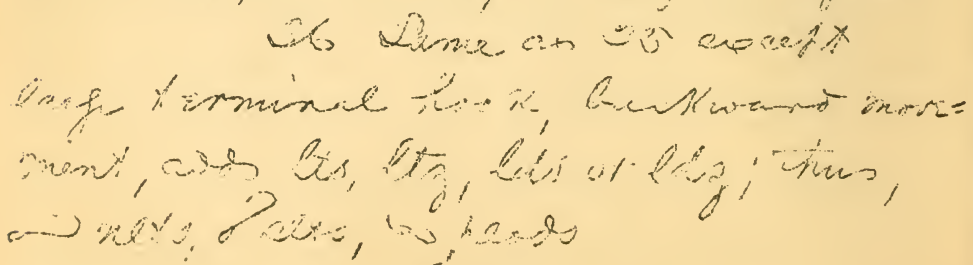 26 Same as 25 except
large terminal hook, backward move=
ment, adds lts, ltz, lds or ldz; thus,
melts, pelts,